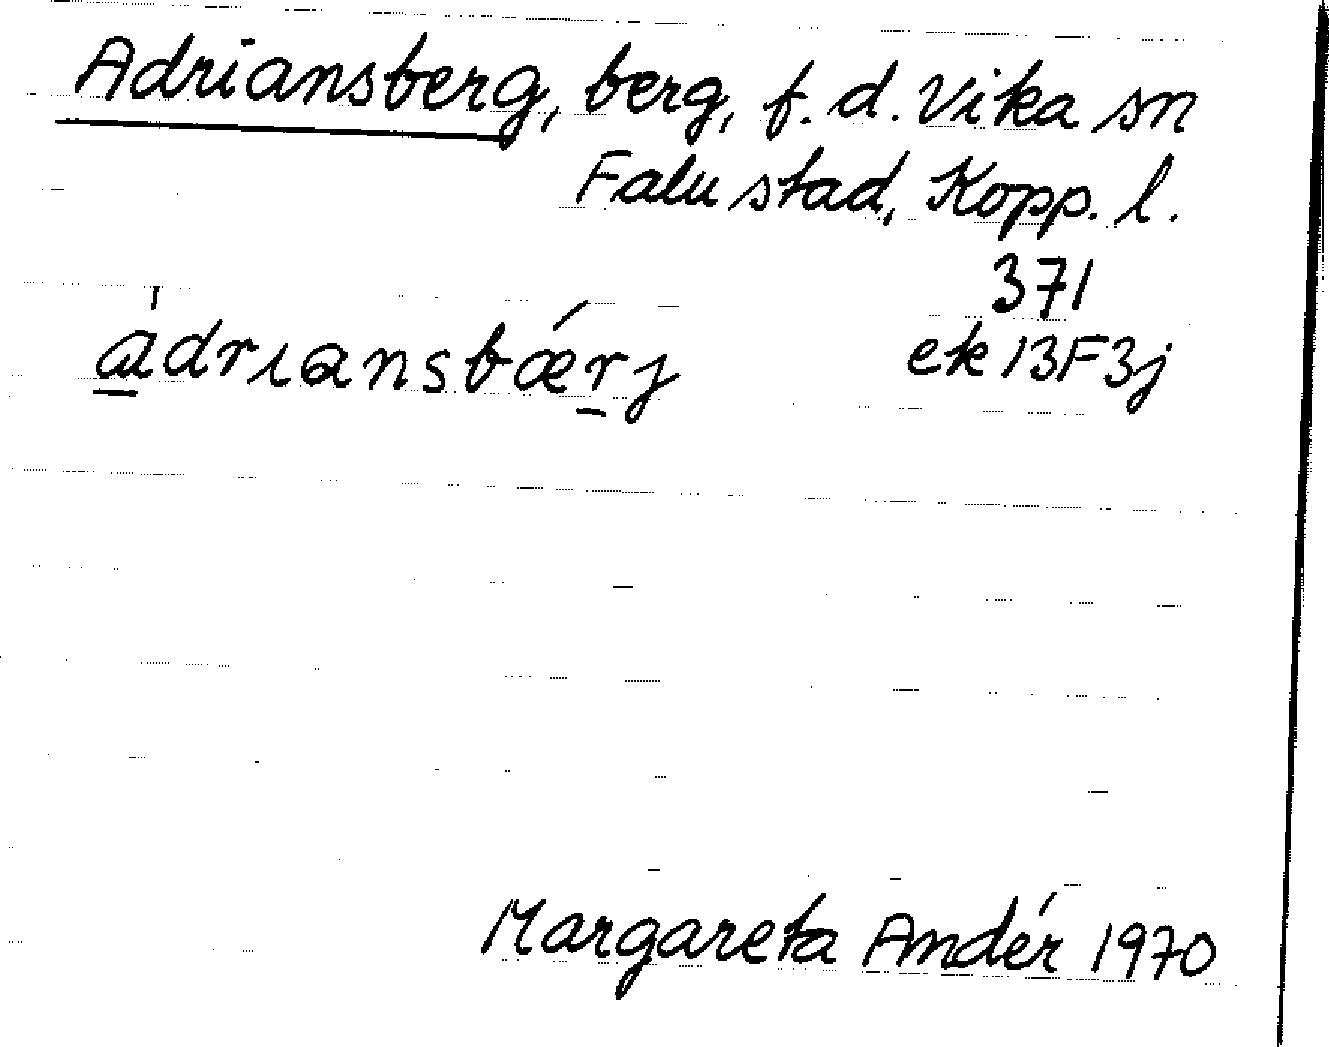 Adriansberg, berg, f. d. Vika sn
Falu stad, Kopp. l.
371
ek 13F3j
a̍drιansbǽrȷ
Margareta Andér 1970